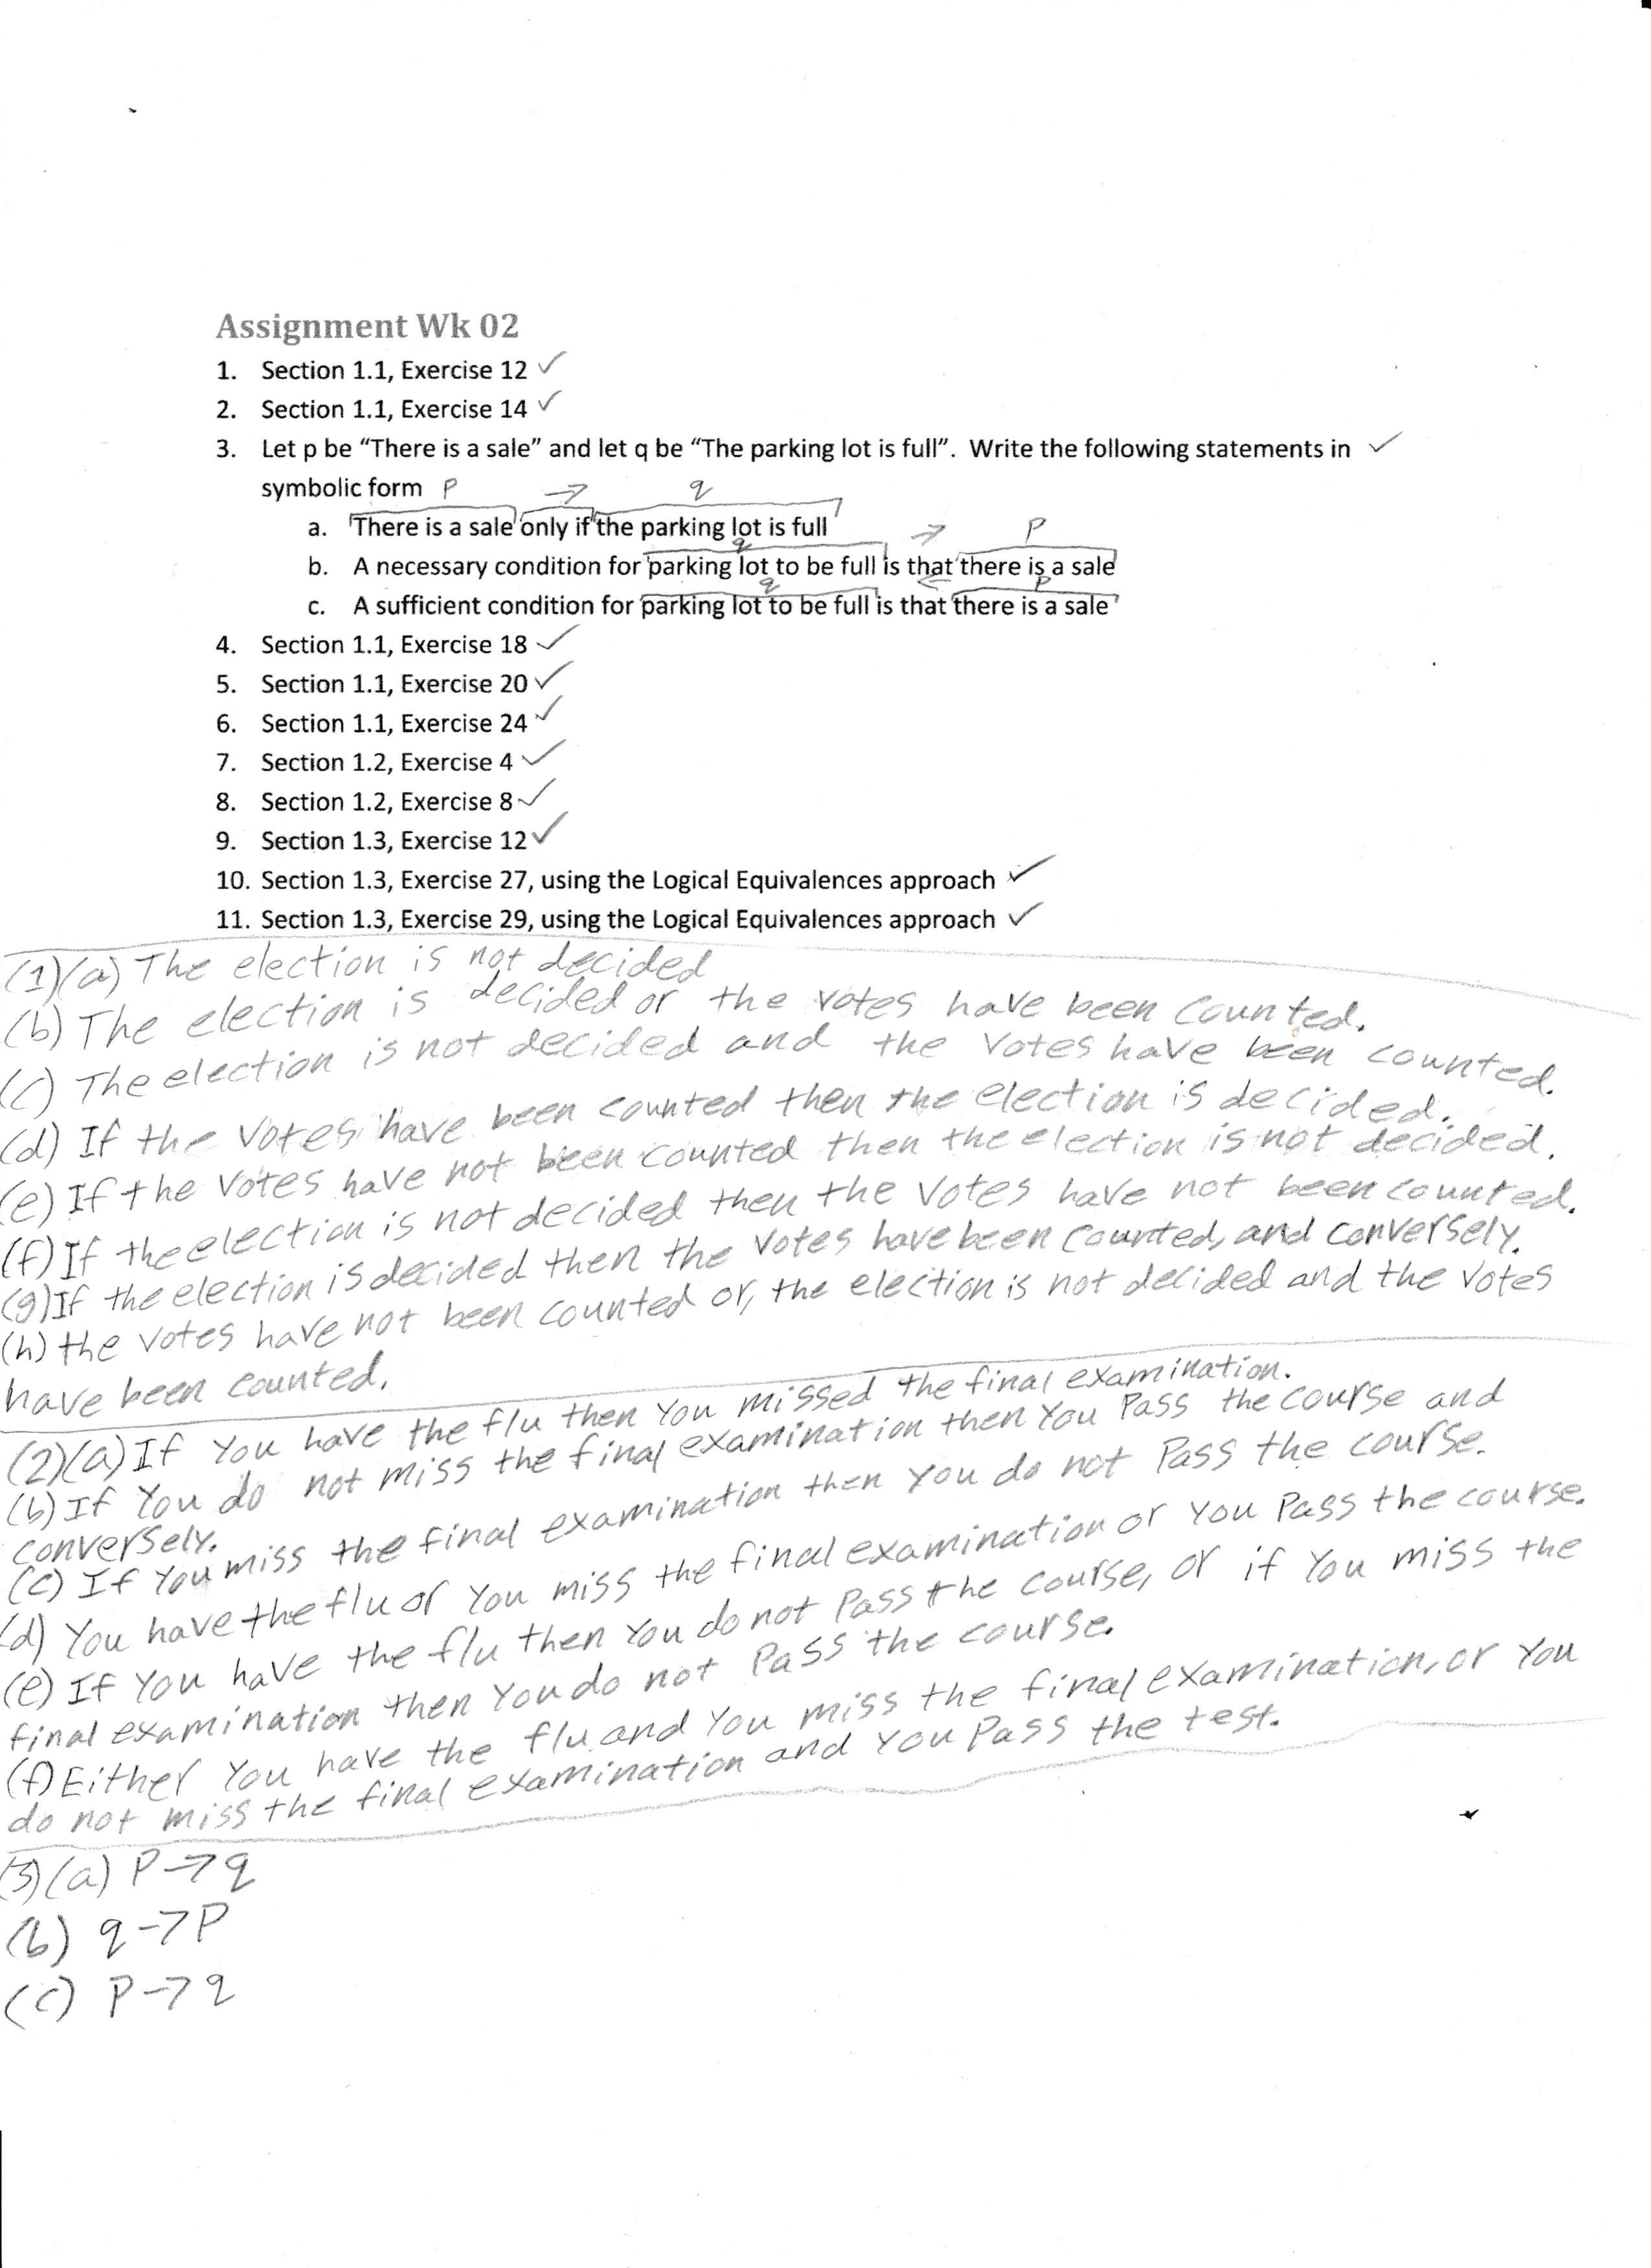 Assignment Wk 02
1. Section 1.1, Exercise 12 ✓
2. Section 1.1, Exercise 14 ✓
3. Let p be “There is a sale” and let q be “The parking lot is full”. Write the following statements in ✓
symbolic form
P → q
a. There is a sale only if the parking lot is full
q → P
b. A necessary condition for parking lot to be full is that there is a sale
q ← P
c. A sufficient condition for parking lot to be full is that there is a sale
4. Section 1.1, Exercise 18 ✓
5. Section 1.1, Exercise 20 ✓
6. Section 1.1, Exercise 24 ✓
7. Section 1.2, Exercise 4 ✓
8. Section 1.2, Exercise 8 ✓
9. Section 1.3, Exercise 12 ✓
10. Section 1.3, Exercise 27, using the Logical Equivalences approach ✓
11. Section 1.3, Exercise 29, using the Logical Equivalences approach ✓
(1)(a) The election is not decided
(b) The election is decided or the votes have been counted.
(c) The election is not decided and the votes have been counted.
(d) If the votes have been counted then the election is decided.
(e) If the votes have not been counted then the election is not decided.
(f) If the election is not decided then the votes have not been counted.
(g) If the election is decided then the votes have been counted, and conversely.
(h) the votes have not been counted or, the election is not decided and the votes
have been counted.
(2)(a) If You have the flu then You missed the final examination.
(b) If You do not miss the final examination then You Pass the course and
conversely.
(c) If You miss the final examination then you do not Pass the course.
(d) You have the flu or You miss the final examination or You Pass the course.
(e) If You have the flu then You do not Pass the course, or if You miss the
final examination then You do not Pass the course.
(f) Either You have the flu and You miss the final examination, or You
do not miss the final examination and You Pass the test.
(3)(a) P→q
(b) q→P
(c) P→q